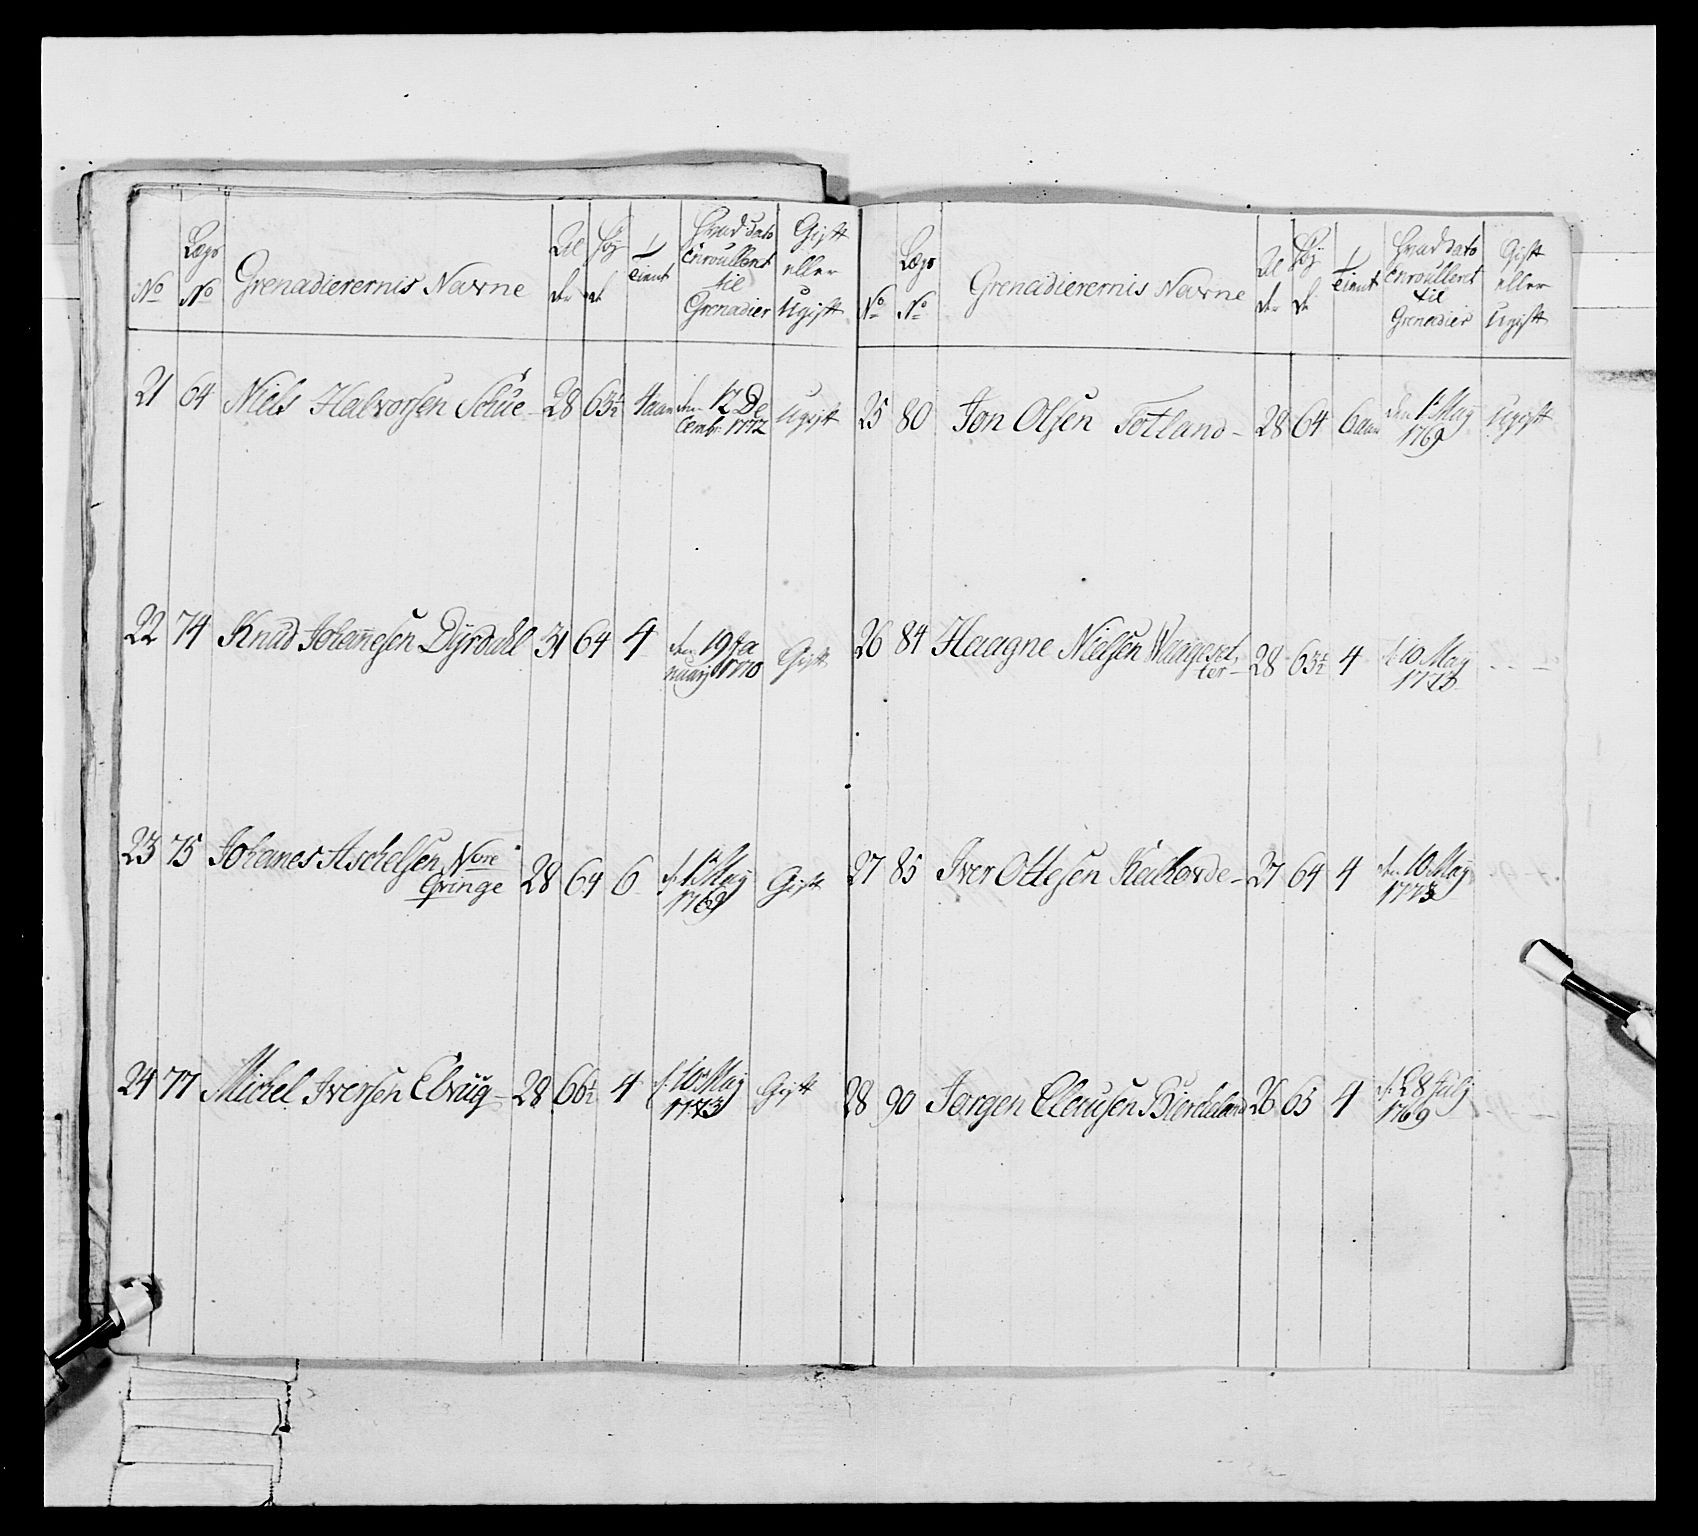 No
Lægs No
Grenadierernis Navne
Al der
Høj de
Tient
Hvad dato Enroullert til Grenadier
Gift eller Ugift
21 64 Niels Halvorsen 28 63½ 4 aar den 12 De
cembr: 1772 Ugift
22 74 Knud Johannesen Dyrdahl 31 64 4 den 19 Ja
nuarj 1770 Gift
23 75 Johanes Aschelsen Nore
Qvinge 28 64 6 d. 1 Maj
1769 Gift
24 77 Michel Iversen Elvüg 28 66½ 4 d. 10 Maj
1773 Gift
No
Lægs No
Grenadierernis Navne
Al der
Høj de
Tient
Hvad dato Enroullert til Grenadier
Gift eller Ugift
25 80 Jon Olsen Totland 28 64 6 aar den 1 Maj
1769 Ugift
26 84 Haagne Nielsen Waageset
ter 28 63½ 4 d. 10 Maj
27 85 Iver Ottesen 27 64 4 den 10 Maj
1773
28 90 Jørgen Clausen Birkeland 26 65 4 d. 28 July
1769